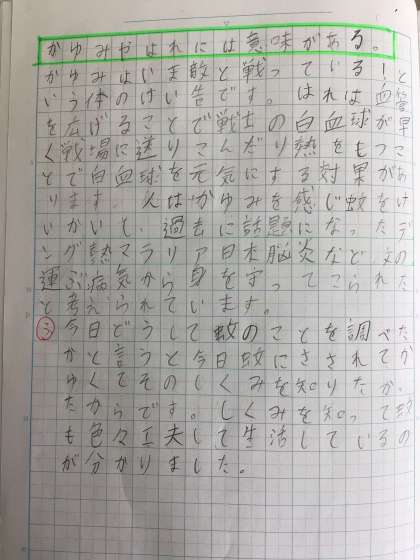 かゆみやはれには意味がある。
かゆみはいま敵と戦っている！と
いう体のけい告です。はれは血管
を広げることで戦士の白血球が早
く戦場に送りこんだり熱をもつこ
とで白血球を元気にする対果があ
ります。人はかゆみを感じ蚊をけ
いかいし、過去に話題になったデ
ング熱マラリア日本脳炎など蚊の
運ぶ病気から身を守ってこられた
と考えられています。
③今日どうして蚊のことを調べた
かと言うと今日蚊にさされてか
ゆくてそのしくみを知りたか
たからです。しくみを知って蚊
も色々工夫して生活しているの
が分かりました。